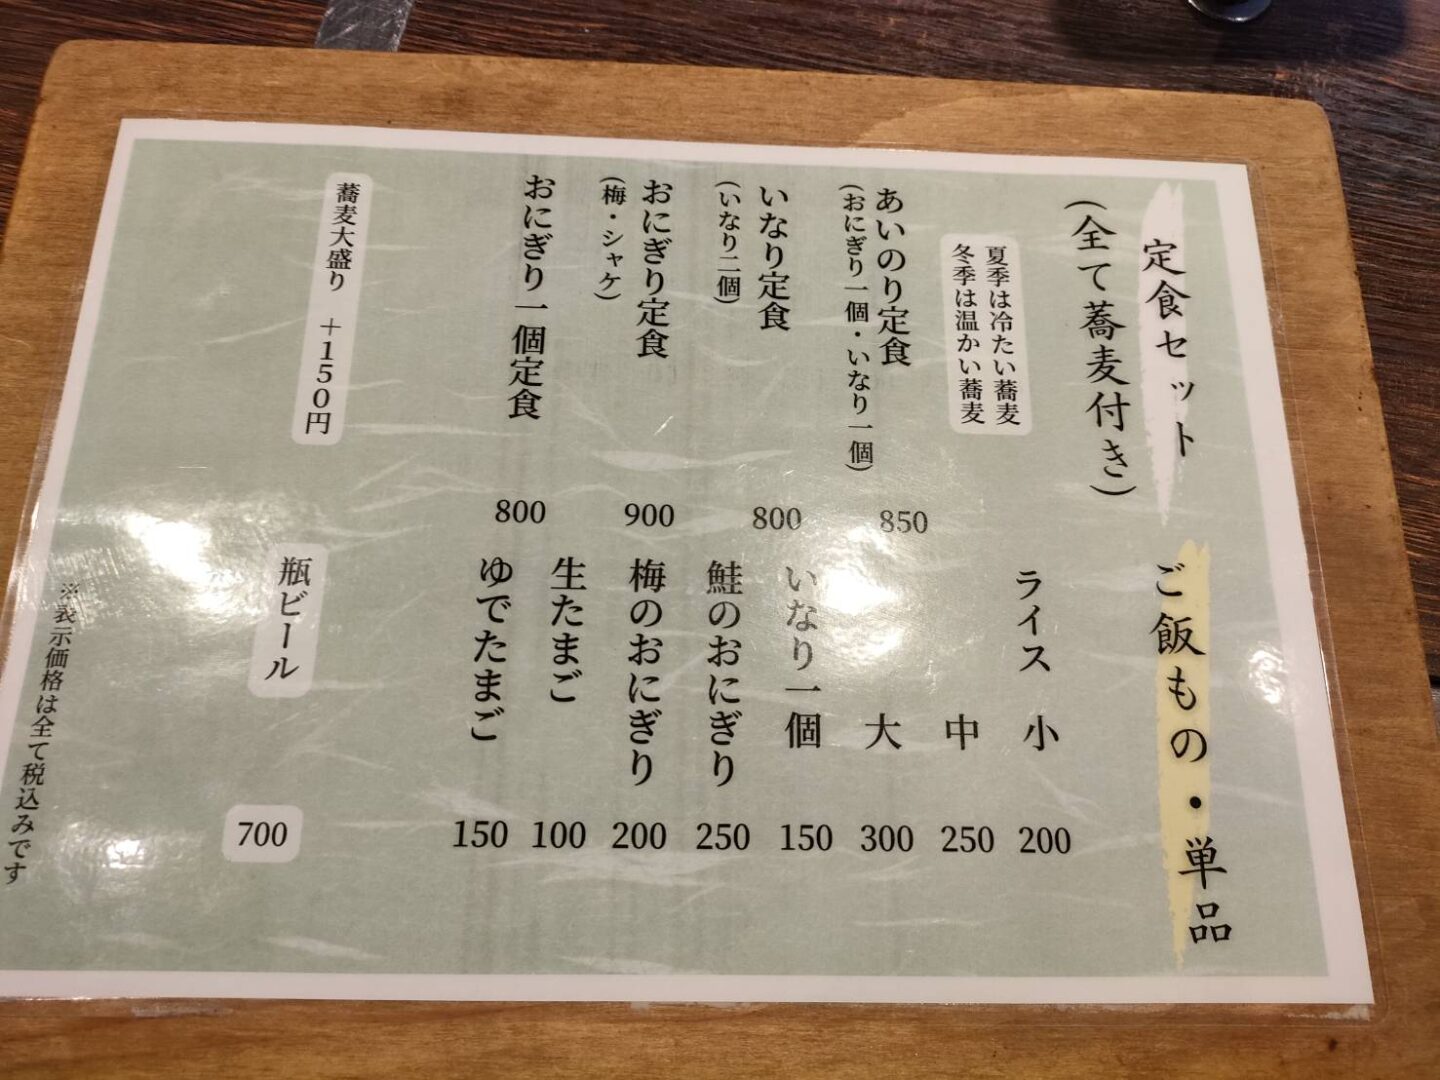 定食セット
(全て蕎麦付き)
夏季は冷たい蕎麦
冬季は温かい蕎麦
あいのり定食 850
(おにぎり一個・いなり一個)
いなり定食 800
(いなり二個)
おにぎり定食 900
(梅・シャケ)
おにぎり一個定食 800
蕎麦大盛り +150円
ご飯もの・単品
ライス 小 200
中 250
大 300
いなり一個 150
鮭のおにぎり 250
梅のおにぎり 200
生たまご 100
ゆでたまご 150
瓶ビール 700
※表示価格は全て税込みです